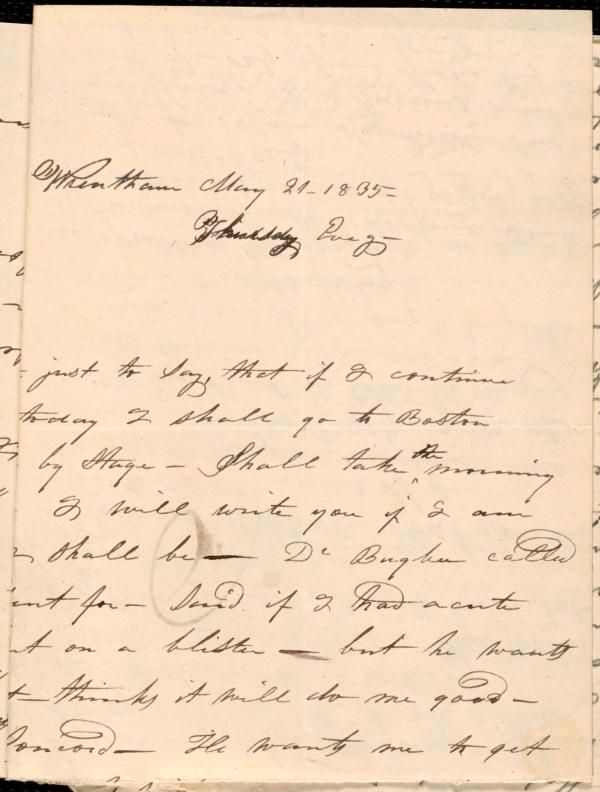 Wrentham May 21 - 1835 -
Thursdy Eveg -
- just to say, that if I continue
today I shall go to Boston
by Stage - Shall take the morning
I will write you if I am
shall be — Dr Bugbee called
for - Said if I had acute
on a blister — but he wants
- thinks it will do me good -
Concord - He wants me to get